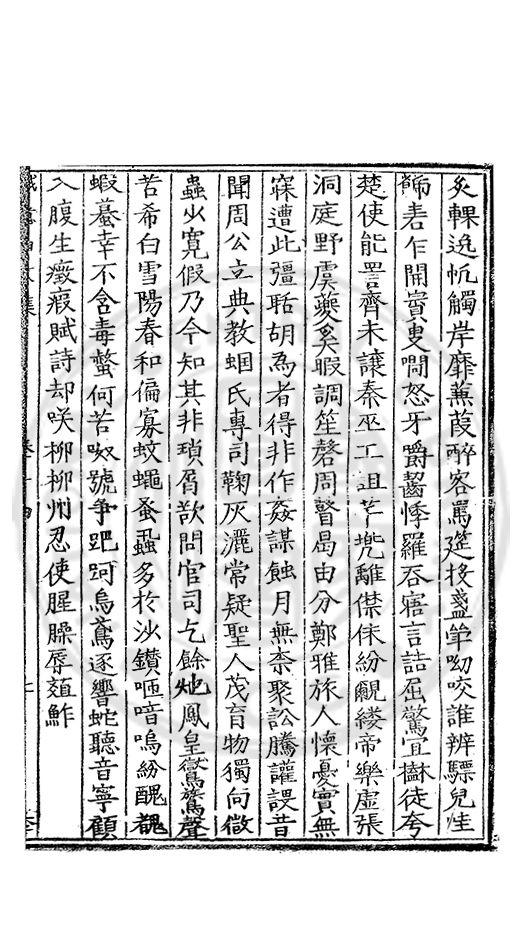 炙輠逸忼觸岸靡蕪葭醉客罵筵投盞斝呦咬誰辨驃兒
砉乍開竇叟怒牙嚼齧悸羅吞寤言詰屈驚宜樕徒夸
楚使能詈齊未讓秦巫工詛芊兜離僸侏紛覼縷帝樂虛張
洞庭野虞夔奚暇調笙磬周瞽曷由分鄭雅旅人懷憂實無
寐遭此彊聒胡為者得非作姦謀蝕月無柰聚訟騰讙昔
聞周公立典教蟈氏專司鞠灰灑常疑聖人茂育物獨向微
蟲少寬假乃今知其非瑣屑欲問官司乞餘灺鳳皇鸑鷟聲
苦希白雪陽春和偏寡蚊蠅蚤蝨多於沙鑽咂喑嗚紛醜
蝦蟇幸不含毒螫何苦呶號爭跁跒烏鳶逐響蛇聽音寧顧
入腹生癥瘕賦詩却咲柳柳州忍使腥臊辱葅鮓